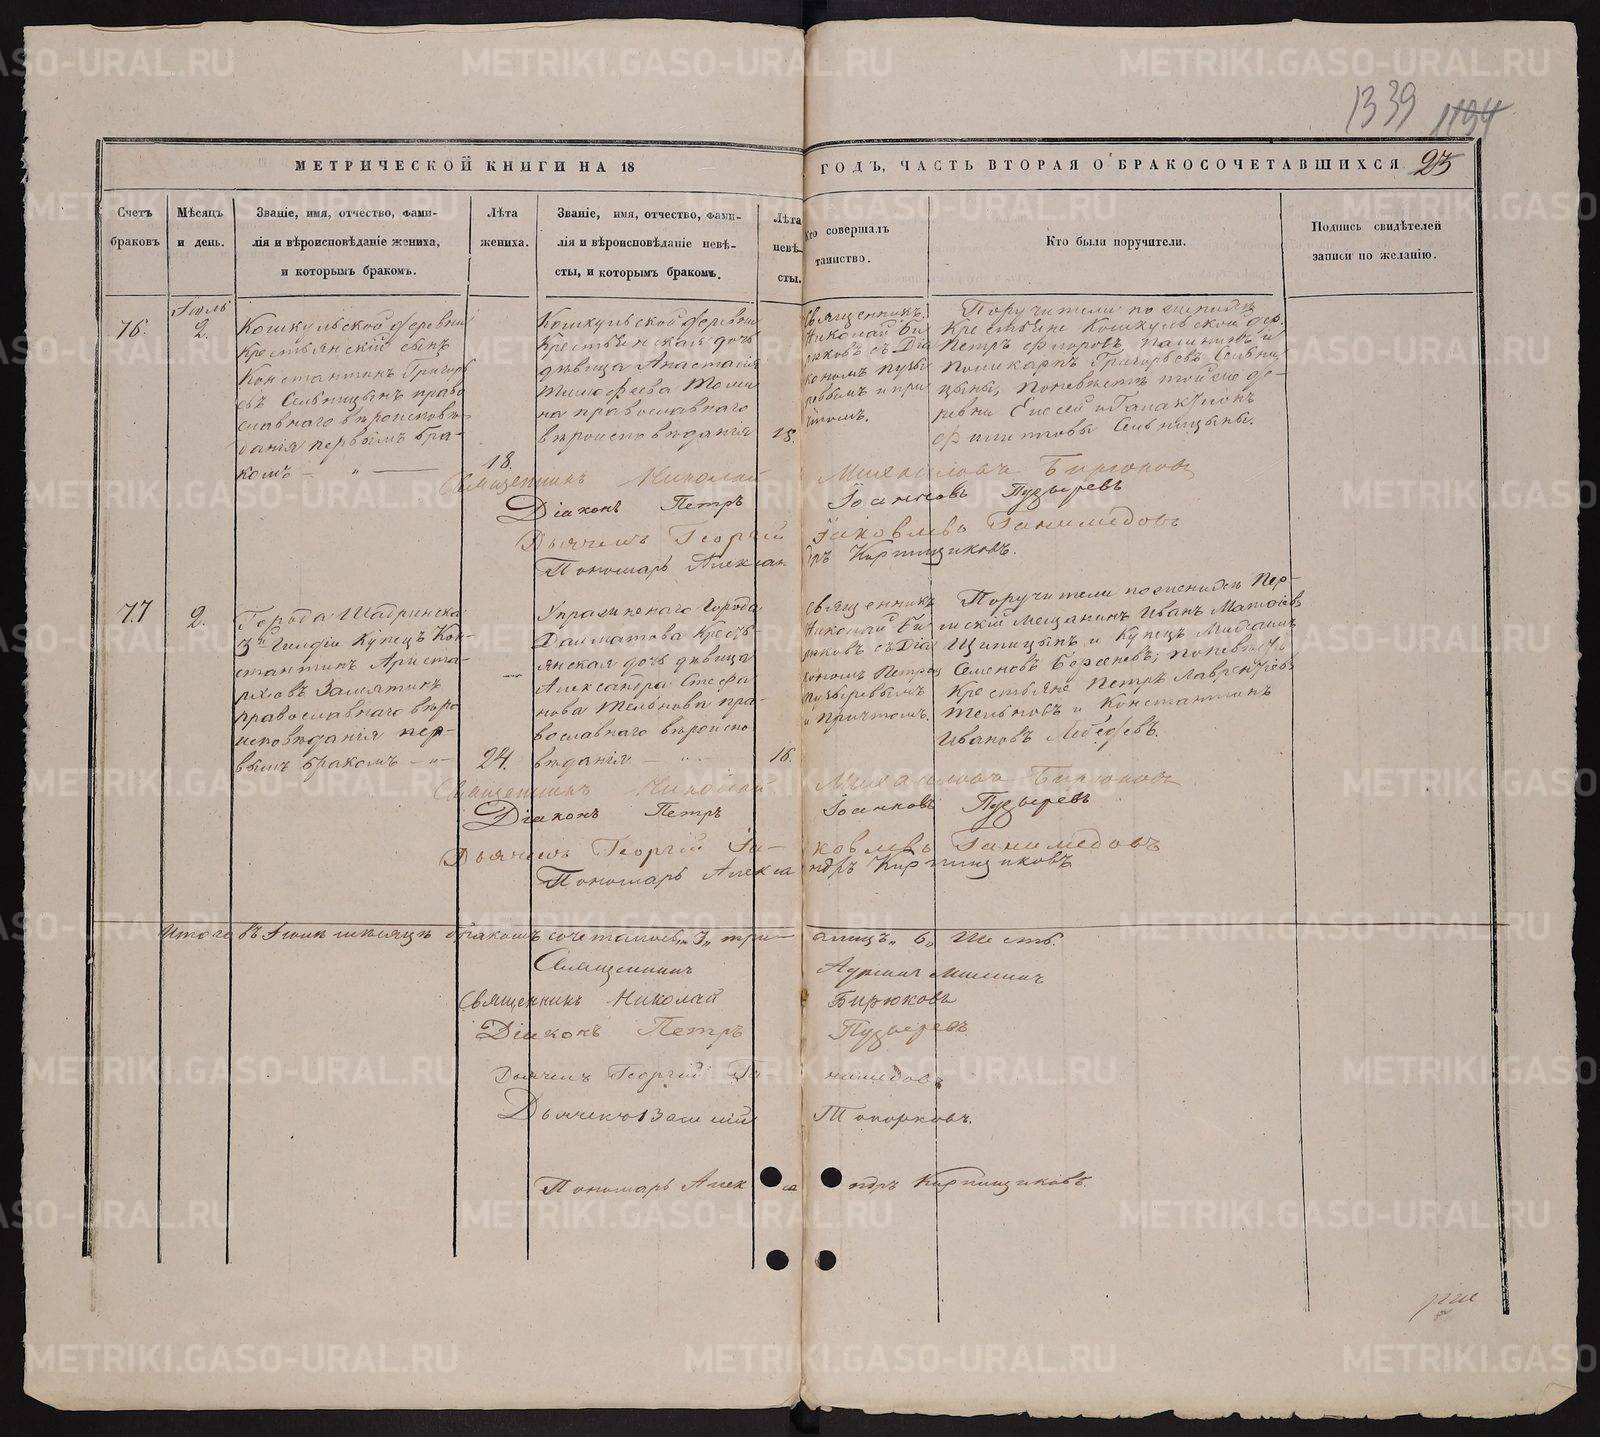 1339 1194
МЕТРИЧЕСКОЙ КНИГИ НА 18
ГОДЪ, ЧАСТЬ ВТОРАЯ О БРАКОСОЧЕТАВШИХСЯ
Счетъ
браковъ
Мѣсяцъ
и день.
Званіе, имя, отчество, фами-
лія и вѣроисповѣданіе жениха,
и которымъ бракомъ.
Лѣта
жениха.
Званіе, имя, отчество, фами-
лія и вѣроисповѣданіе невѣ-
сты, и которымъ бракомъ.
Лѣта
невѣ-
сты.
Кто совершалъ
таинство.
Кто были поручители.
Подпись свидѣтелей
записи по желанію.
76.
2.
Кошкульской деревни
крестьянскій сынъ
Константинъ Григорь
евъ Сельницынъ право
славнаго вѣроисповѣ
данія первымъ бра-
комъ
18.
Кошкульской деревни
крестьянская дочь
дѣвица Анастасія
Тимофеева
на православнаго
вѣроисповѣданія
18.
Священникъ
Николай Би
рюковъ съ Діа
кономъ Пузы
ревымъ и при
чтомъ.
Поручители по женихѣ
крестьяне Кошкульской дер.
Петръ и
Поликарпъ Григорьевъ Сельни
цыны, по невѣстѣ той же де-
ревни Елесей и Галактіонъ
Филиповы Сельницыны.
Священникъ Николай Михайловъ Бирюковъ
Діаконъ Петръ Іоанновъ Пузыревъ
Дьячекъ Георгій Іаковлевъ Ганимедовъ
Пономарь Александръ Кирпищиковъ.
77
2.
Города Шадринска
3й Гильдіи Купецъ Кон-
стантинъ Ариста-
рховъ Замятинъ
православнаго вѣро
исповѣданія пер-
вымъ бракомъ
24.
Упраздненаго города
Далматова Кресть-
янская дочь дѣвица
Александра Стефа
нова Тельнова пра-
вославнаго вѣроиспо
вѣданія
16.
Священникъ
Николай Би
рюковъ съ Діа
кономъ Петромъ
Пузыревымъ
и причтомъ.
Поручители по женихѣ Пер-
мскій мещанинъ Иванъ Матвѣевъ
Щипицынъ и Купецъ Михаилъ
Семеновъ, по невѣстѣ
Крестьяне Петръ Лаврентьевъ
Тельновъ и Константинъ
Ивановъ Лебедевъ.
Священникъ Николай Михайловъ Бирюковъ
Діаконъ Петръ Іоанновъ Пузыревъ
Дьячекъ Георгій Іаковлевъ Ганимедовъ
Пономарь Александръ Кирпищиковъ
Итого въ мѣсяцѣ бракомъ сочеталось „3„ три а лицъ „6„ Шесть.
Священникъ
Священникъ Николай Бирюковъ
Діаконъ Петръ Пузыревъ
Дьячекъ Георгій Ганимедовъ
Дьячекъ Топорковъ.
Пономарь Александръ Кирпищиковъ.